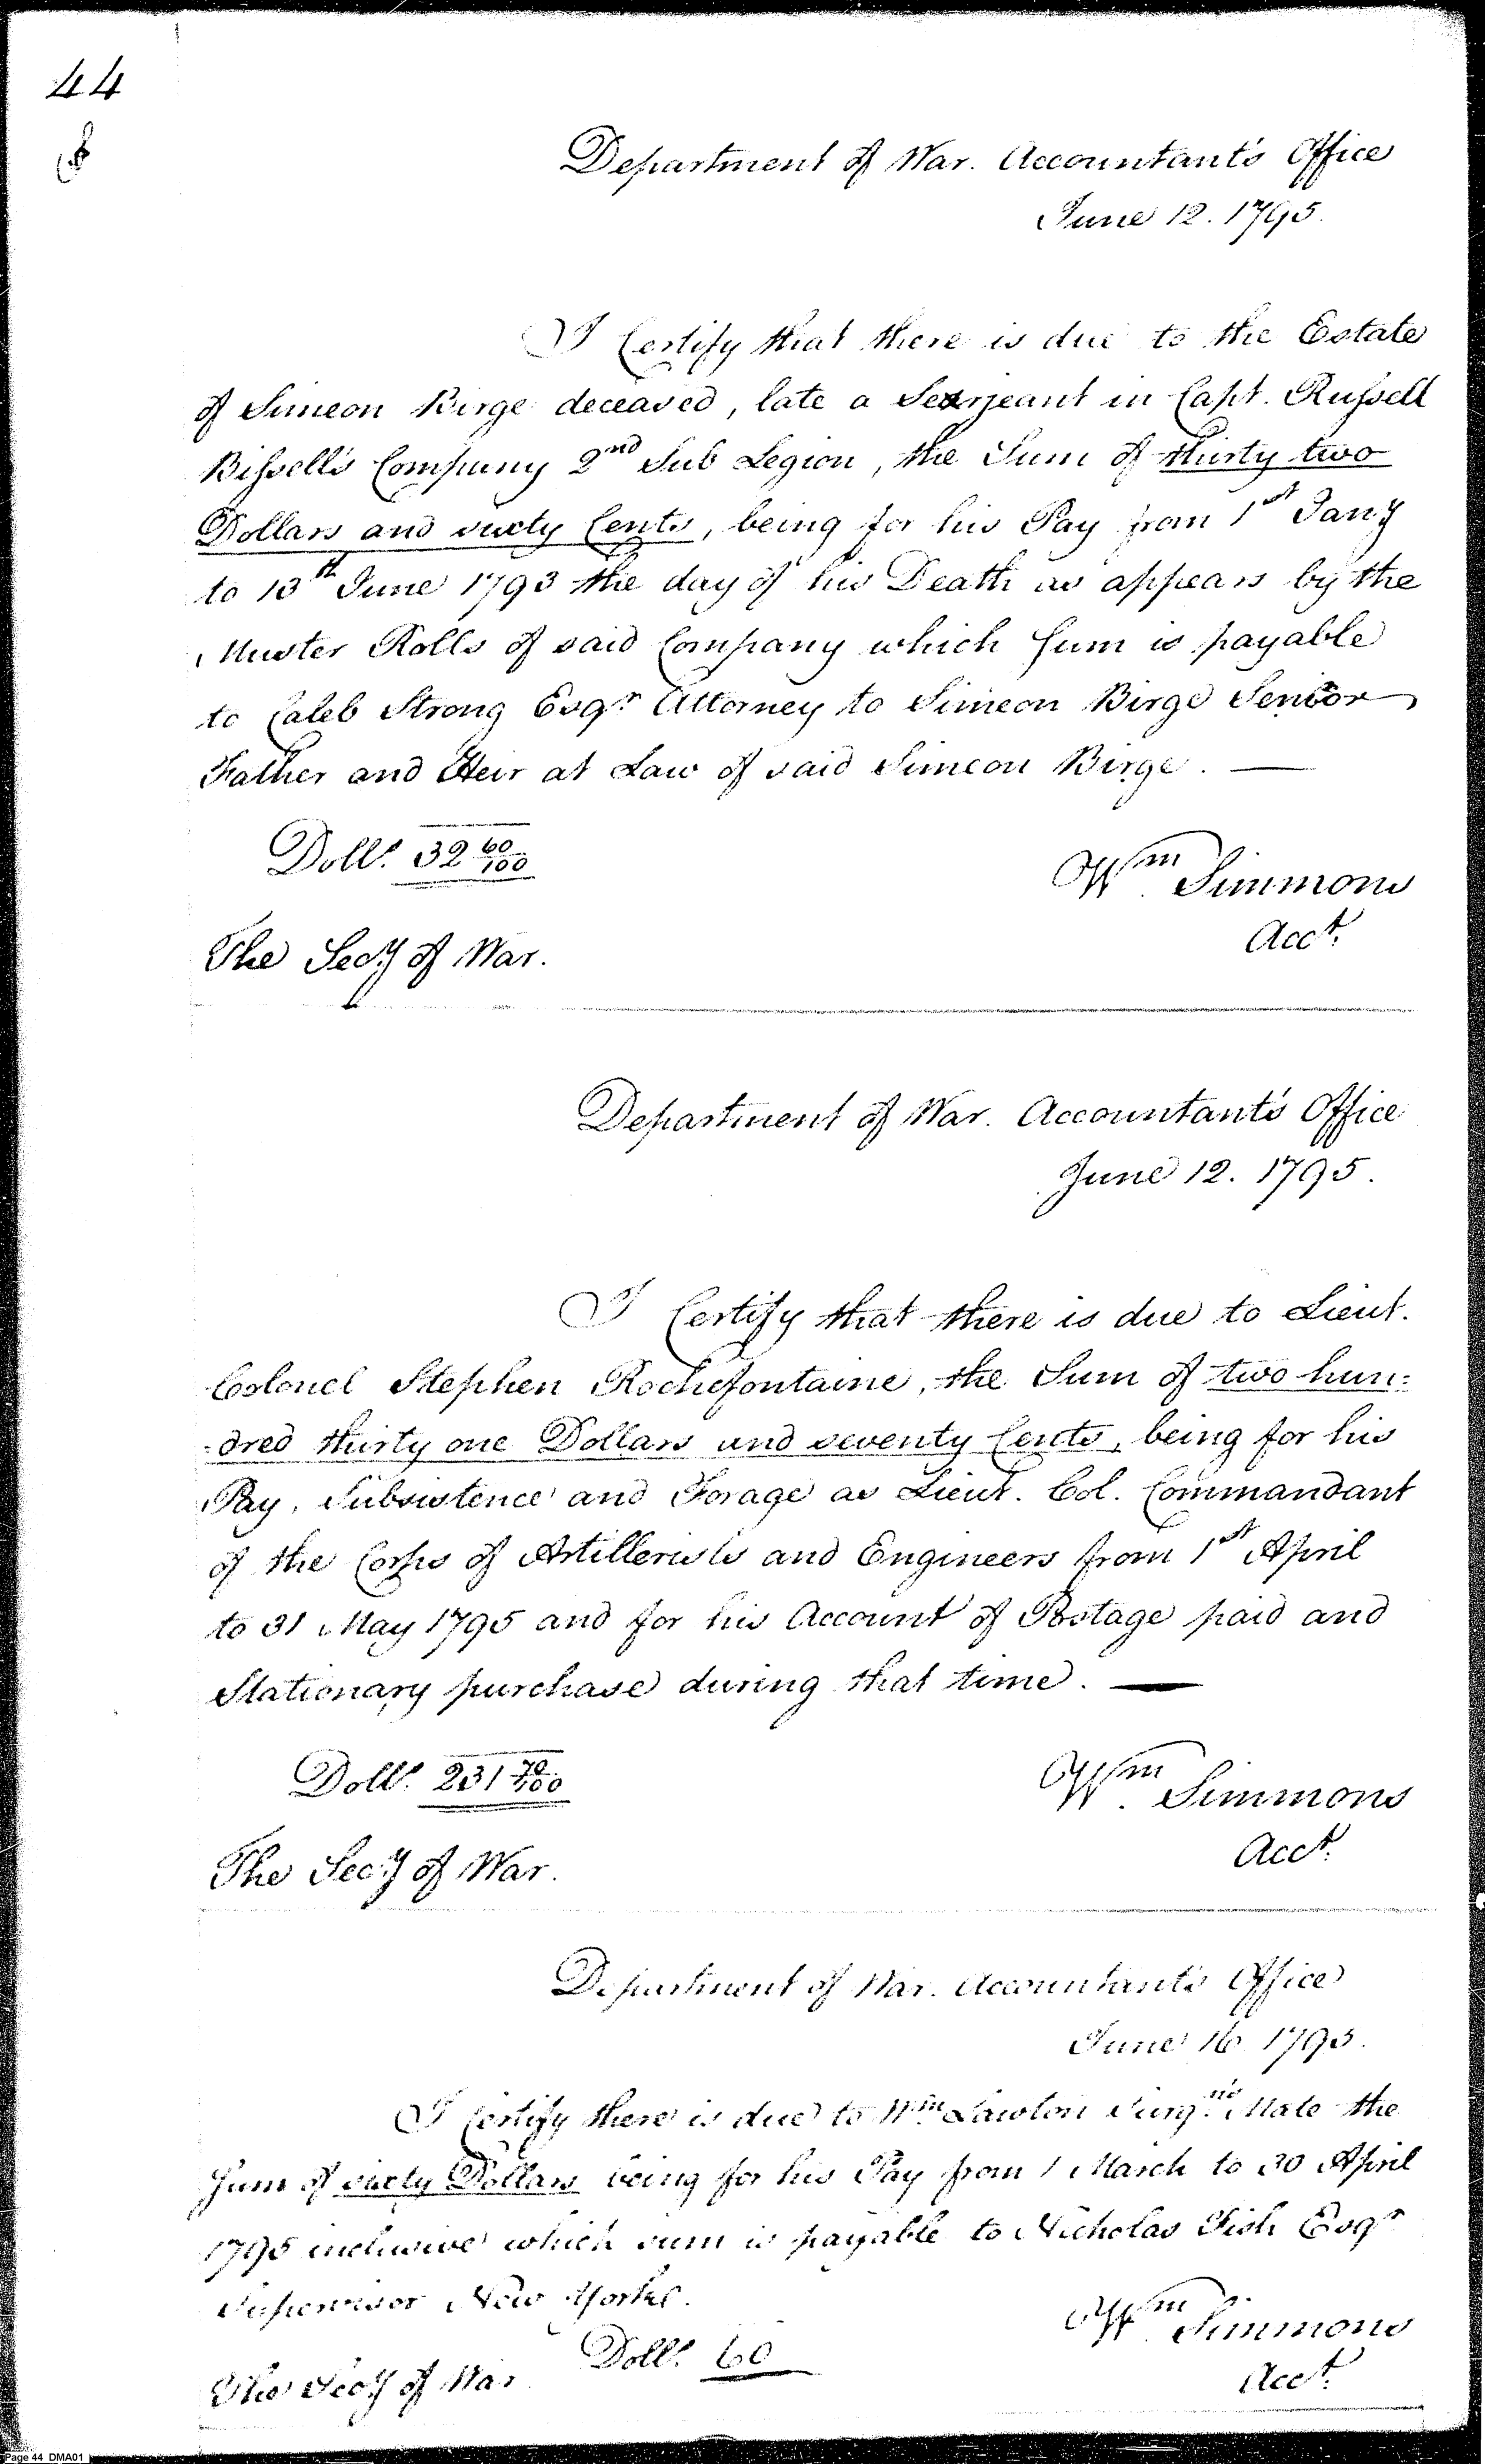 44
Department of War. Accountant's Office
June 12. 1795.
I Certify that there is due to the Estate
of Simeon Birge deceased, late a Serjeant in Capt. Russell
Bissell's Company 2nd Sub Legion, the Sum of thirty two
Dollars and sixty Cents, being for his Pay from 1st Jany
to 13th June 1793 the day of his Death as appears by the
Muster Rolls of said Company which sum is payable
to Caleb Strong Esqr. Attorney to Simeon Birge Senior
Father and Heir at Law of said Simeon Birge. —
Dolls. 32 60/100
Wm. Simmons
Acct.
The Secy of War.
Department of War. Accountant's Office
June 12. 1795.
I Certify that there is due to Lieut.
Colonel Stephen Rochefontaine, the Sum of two hun:
:dred thirty one Dollars and seventy Cents, being for his
Pay, Subsistence and Forage as Lieut. Col. Commandant
of the Corps of Artillerists and Engineers from 1st April
to 31 May 1795 and for his Account of Postage paid and
Stationary purchase during that time. —
Dolls. 231 70/100
Wm. Simmons
Acct.
The Secy of War.
Department of War. Accountant's Office
June 16 1795.
I Certify there is due to Wm. Lawton Surgns. Mate the
Sum of sixty Dollars being for his Pay from 1 March to 30 April
1795 inclusive which sum is payable to Nicholas Fish Esqr
Supervisor New Yorke.
Wm. Simmons
Dolls. 60
Acct.
The Secy of War
Page 44 DMA01